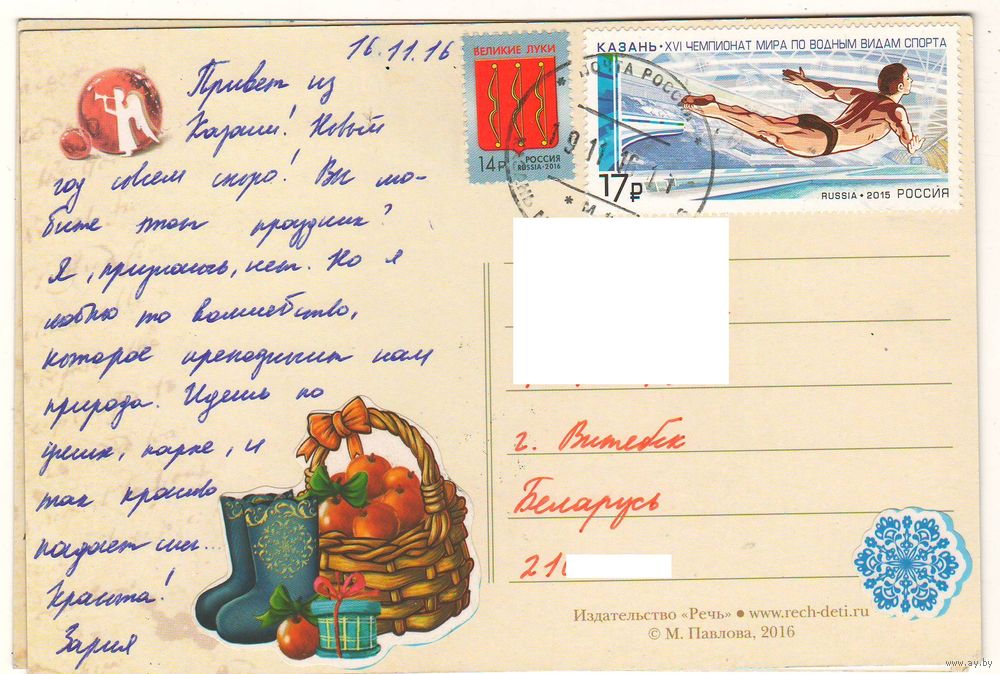 16.11.16
Привет из
Казани! Новый
год совсем скоро! Вы лю-
бите этот праздник?
Я, признаюсь, нет. Но я
люблю то волшебство,
которое преподносит нам
природа. Идёшь по
улице, парке, и
так красиво
падает снег...
Красота!
Зария
ВЕЛИКИЕ ЛУКИ
14₽ РОССИЯ
RUSSIA•2016
КАЗАНЬ • XVI ЧЕМПИОНАТ МИРА ПО ВОДНЫМ ВИДАМ СПОРТА
17₽
RUSSIA • 2015 РОССИЯ
ПОЧТА РОССИИ
19 11 16
г. Витебск
Беларусь
210
Издательство «Речь» • www.rech-deti.ru
© М. Павлова, 2016
www.ay.by